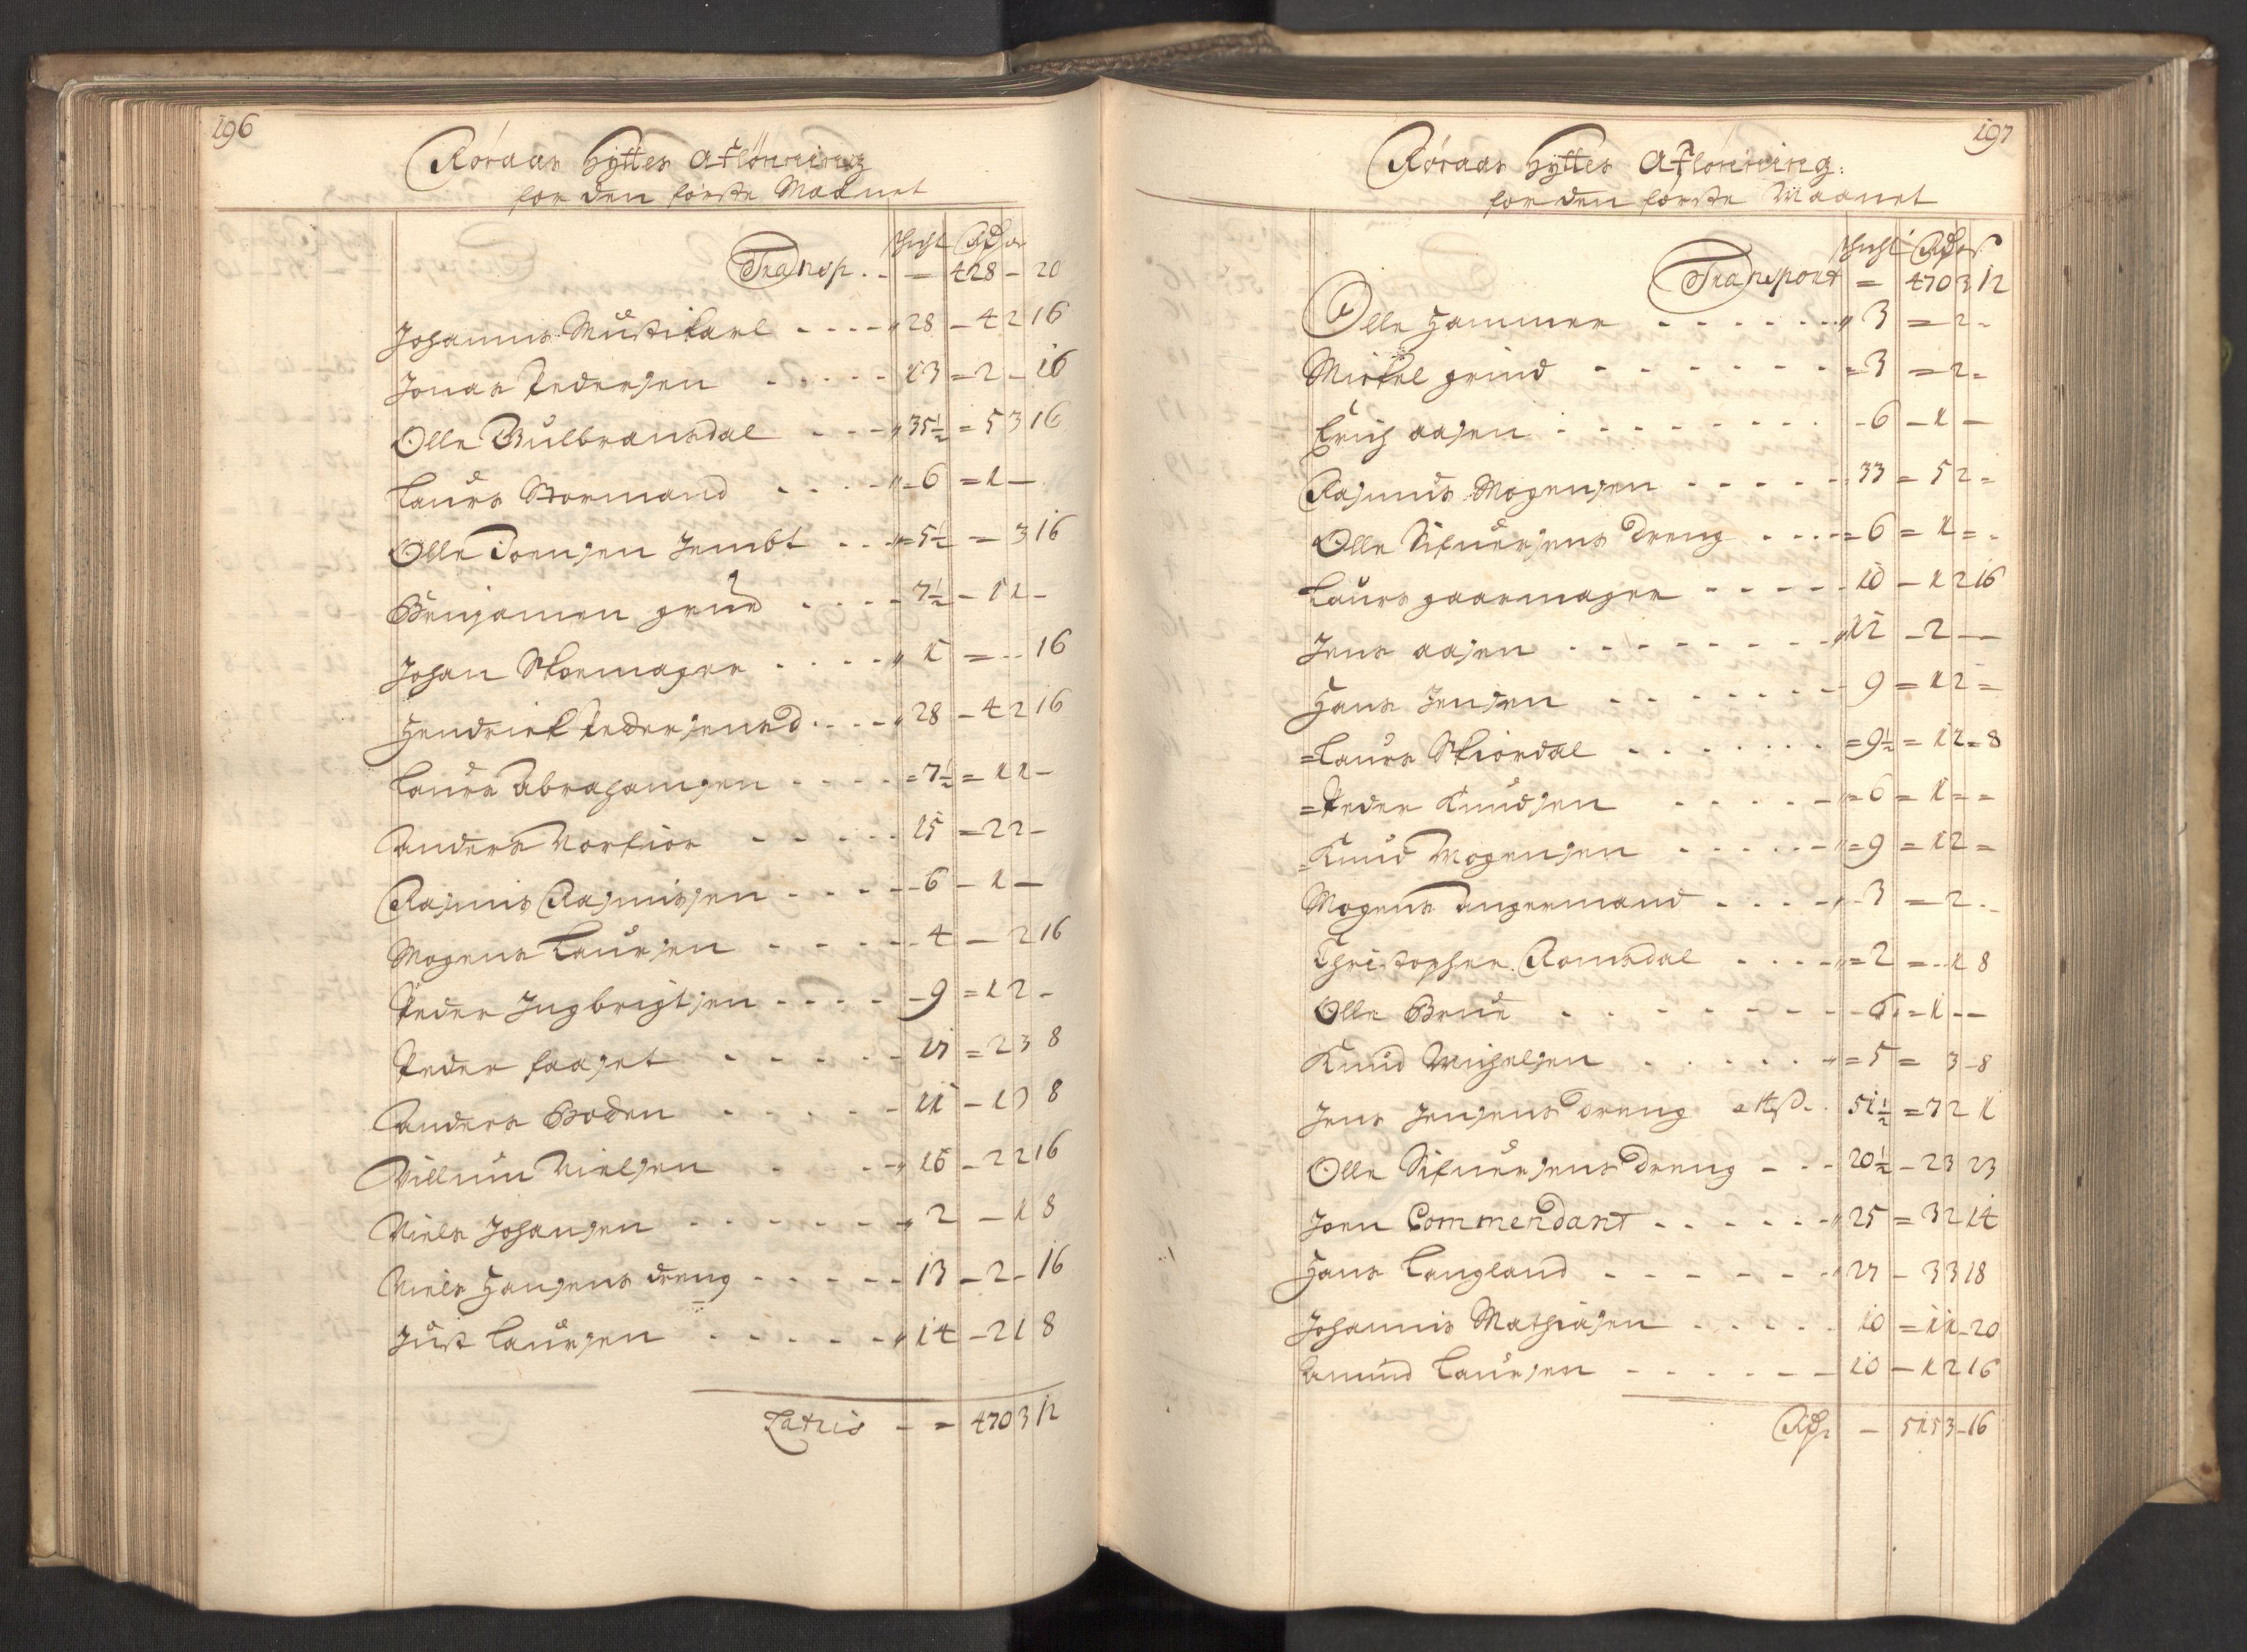 196
Röraas Hyttes Aflönning
for den förste Maanet
Schicht Rdr
Transp. - = 428 - 20
Johannis Musikarl - - - - 28 - 4 2 16
Jonas Pedersen - - - - - 13 = 2 - 16
Olle Gulbransdal - - - 35½ = 5 3 16
Laurs Normand - - - - 6 = 1 -
Olle Joensen Jembt - - - 5½ = 3 16
Benjamen - - - - 7½ - 1 1 -
Johan Skoemager - - - - 1 = - - 16
Hendrick Pedersens d - - - 28 - 4 2 16
Laurs Abrahamsen - - - - 7½ = 1 1 -
Anders Norfior - - - - - 15 = 2 2 -
Rasmus Rasmusen - - - - 6 - 1 -
Mogens Laursen - - - - - 4 - 2 16
Peder Ingbrigtsen - - - - 9 = 1 2 -
Peder faaset - - - - - 17 = 2 3 8
Anders Boden - - - - - 11 - 1 3 8
Villum Nielsen - - - 16 - 2 2 16
Niels Johansen - - - - - - 2 - 1 8
Niels Hansens dreng - - - - - 13 - 2 - 16
Just Laursen - - - - - 14 - 2 1 8
Latris - = 470 3 12
197
Röraas Hyttes Aflönning:
for den förste Maanet
Schicht Rdr
Transport = 470 3 12
Olle Hammer - - - - - - - 3 = 2 -
Mickel grind - - - - - - - = 3 = 2 -
Erich aasen - - - - - - - - - 6 - 1 -
Rasmus Mogensen - - - - - 33 = 5 2 =
Olle Sifuersens dreng - - - - = 6 = 1 = -
Laurs gaarmager - - - - - 10 - 1 2 16
Jens aasen - - - - - - - - 12 - 2 - -
Hans Jensen - - - - - - 9 = 1 2 =
= Laurs Skiordal - - - - - - - = 9½ = 1 2 = 8
= Peder Knudsen - - - - - = 6 = 1 = =
= Knud Mogensen - - - - - = 9 = 1 2 =
Mogens Angermand - - - - - 3 = 2 -
Christopher Romsdal - - - - = 2 = - 1 8
Olle Brud - - - - - - - - 6 = 1 - -
Knud Michelsen - - - - - = 5 = 3 - 8
Jens Jensens dreng - - 51½ = 7 2 1
Olle Sifuersens dreng - - - 20½ - 2 3 23
Joen Commendant - - - - - - 25 = 3 2 14
Hans Langland - - - - - - 27 - 3 3 18
Johannis Mathiasen - - - - - 10 = 1 1 - 20
Amund Laursen - - - - - - 10 - 1 2 16
Rdr - 515 3 - 16